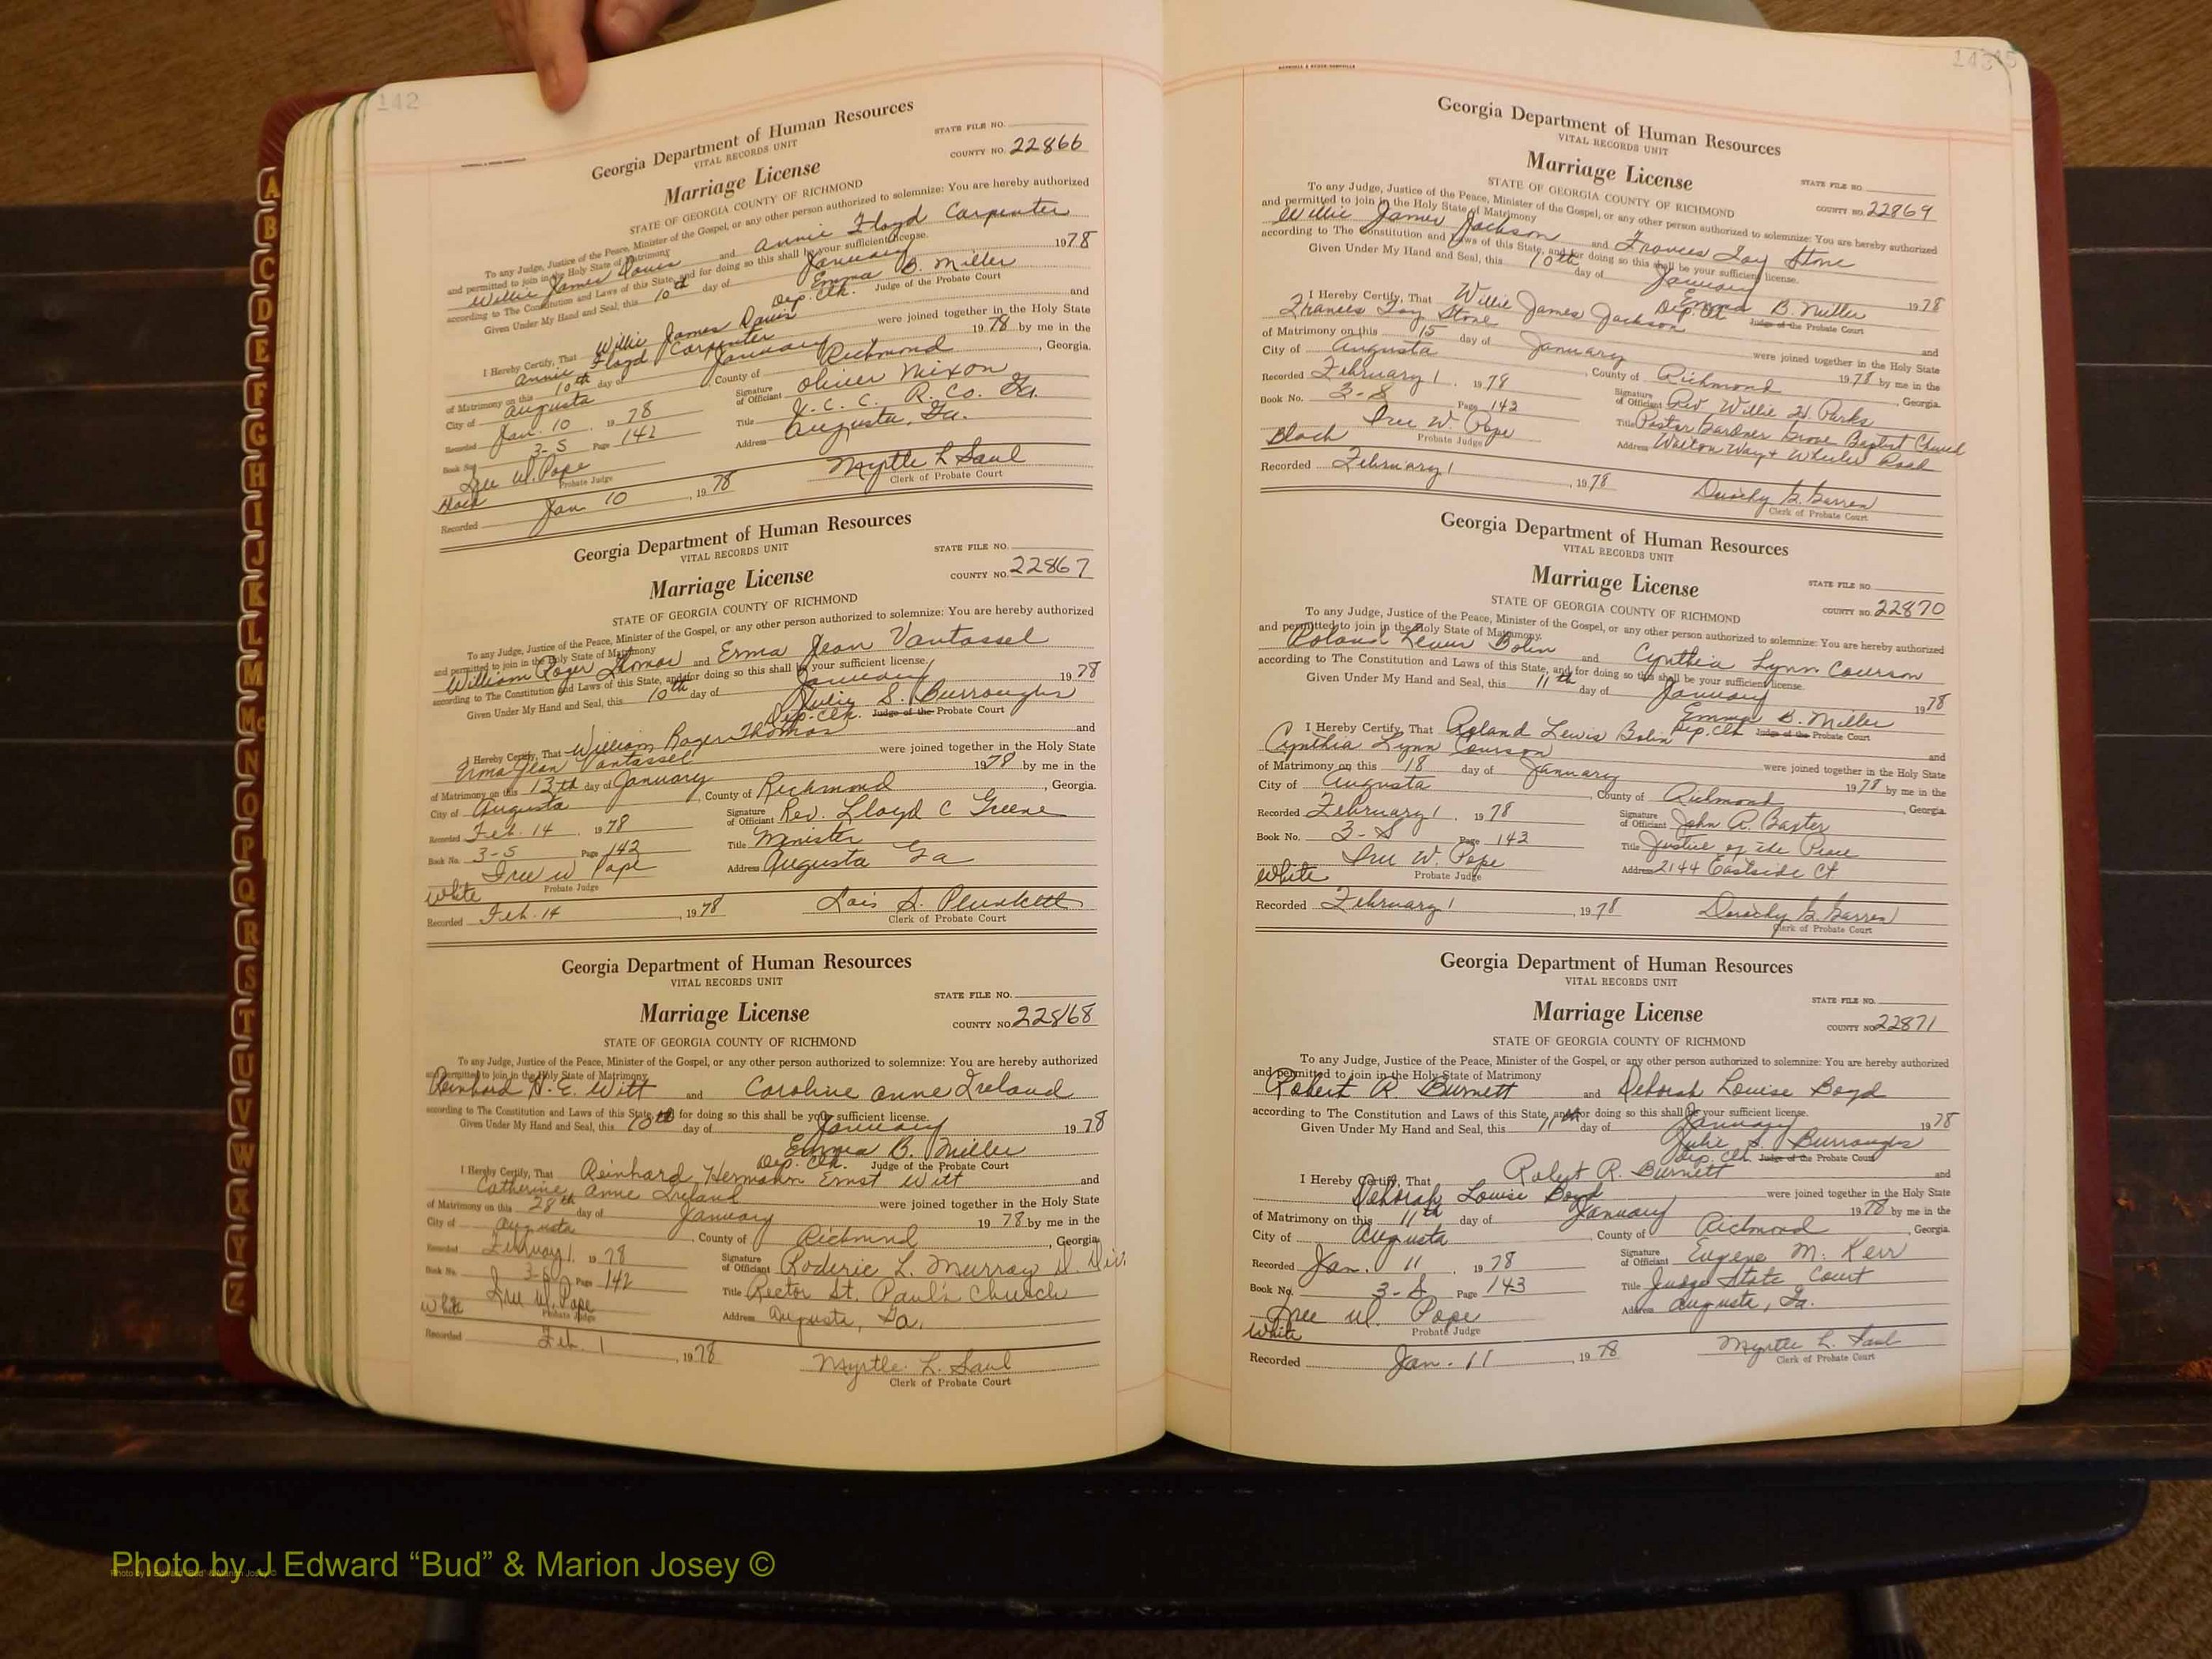 142
Georgia Department of Human Resources
VITAL RECORDS UNIT
STATE FILE NO.
Marriage License
COUNTY NO. 22866
STATE OF GEORGIA COUNTY OF RICHMOND
To any Judge, Justice of the Peace, Minister of the Gospel, or any other person authorized to solemnize: You are hereby authorized
and permitted to join in the Holy State of Matrimony
Willie James Davis and Annie Floyd Carpenter
according to The Constitution and Laws of this State, and for doing so this shall be your sufficient license.
Given Under My Hand and Seal, this 10th day of January 1978
Emma B. Miller
Dep. Clk. Judge of the Probate Court
I Hereby Certify, That Willie James Davis and
Annie Floyd Carpenter were joined together in the Holy State
of Matrimony on this 10th day of January 1978 by me in the
City of Augusta County of Richmond, Georgia.
Recorded Jan. 10, 1978 Signature of Officiant Oliver Nixon
Book No. 3-S Page 142 Title R. Co. Ga.
W. Pope Address Augusta, Ga.
Probate Judge
Myrtle L Saul
Recorded Jan 10, 1978 Clerk of Probate Court
Georgia Department of Human Resources
VITAL RECORDS UNIT
STATE FILE NO.
Marriage License
COUNTY NO. 22867
STATE OF GEORGIA COUNTY OF RICHMOND
To any Judge, Justice of the Peace, Minister of the Gospel, or any other person authorized to solemnize: You are hereby authorized
and permitted to join in the Holy State of Matrimony
William Roger Thomas and Erma Jean Vantassel
according to The Constitution and Laws of this State, and for doing so this shall be your sufficient license.
Given Under My Hand and Seal, this 10th day of January 1978
Julie S. Burroughs
Dep. Clk. Judge of the Probate Court
I Hereby Certify, That William Roger Thomas and
Erma Jean Vantassel were joined together in the Holy State
of Matrimony on this 13th day of January 1978 by me in the
City of Augusta, County of Richmond, Georgia.
Recorded Feb. 14, 1978 Signature of Officiant Rev. Lloyd C Greene
Book No. 3-S Page 142 Title Minister
W Pope Address Augusta Ga
White Probate Judge
Lois S. Plunkett
Recorded Feb. 14, 1978 Clerk of Probate Court
Georgia Department of Human Resources
VITAL RECORDS UNIT
STATE FILE NO.
Marriage License
COUNTY NO. 22868
STATE OF GEORGIA COUNTY OF RICHMOND
To any Judge, Justice of the Peace, Minister of the Gospel, or any other person authorized to solemnize: You are hereby authorized
and permitted to join in the Holy State of Matrimony
Reinhard H. E. Witt and Caroline Anne Ireland
according to The Constitution and Laws of this State, and for doing so this shall be your sufficient license.
Given Under My Hand and Seal, this 10th day of January 1978
Emma B. Miller
Dep. Clk. Judge of the Probate Court
I Hereby Certify, That Reinhard Hermahn Ernst Witt and
Catherine Anne Ireland were joined together in the Holy State
of Matrimony on this 28th day of January 1978 by me in the
City of Augusta, County of Richmond, Georgia
Recorded February 1, 1978 Signature of Officiant Roderic L. Murray D. Div.
Book No. 3-S Page 142 Title Rector St. Paul's Church
W. Pope Address Augusta, Ga.
White Probate Judge
Recorded Feb 1, 1978 Myrtle L. Saul
Clerk of Probate Court
Georgia Department of Human Resources
VITAL RECORDS UNIT
Marriage License
STATE FILE NO.
STATE OF GEORGIA COUNTY OF RICHMOND
COUNTY NO. 22869
To any Judge, Justice of the Peace, Minister of the Gospel, or any other person authorized to solemnize: You are hereby authorized
and permitted to join in the Holy State of Matrimony
Willie James Jackson and Frances Fay Stone
according to The Constitution and Laws of this State, and for doing so this shall be your sufficient license.
Given Under My Hand and Seal, this 10th day of January 1978
Emma B. Miller
Dep. Clk Judge of the Probate Court
I Hereby Certify, That Willie James Jackson and
Frances Fay Stone were joined together in the Holy State
of Matrimony on this 15 day of January 1978 by me in the
City of Augusta, County of Richmond, Georgia.
Recorded February 1, 1978 Signature of Officiant Rev Willie H. Parks
Book No. 3-S Page 143 Title Pastor Gardner Grove Baptist Church
W. Pope Address Walton Way + Wheeler Road
Black Probate Judge
Recorded February 1, 1978
Clerk of Probate Court
Georgia Department of Human Resources
VITAL RECORDS UNIT
STATE FILE NO.
Marriage License
COUNTY NO. 22870
STATE OF GEORGIA COUNTY OF RICHMOND
To any Judge, Justice of the Peace, Minister of the Gospel, or any other person authorized to solemnize: You are hereby authorized
and permitted to join in the Holy State of Matrimony.
Roland Lewis Bolin and Cynthia Lynn Courson
according to The Constitution and Laws of this State, and for doing so this shall be your sufficient license.
Given Under My Hand and Seal, this 11th day of January 1978
Emma B. Miller
Dep. Clk Judge of the Probate Court
I Hereby Certify, That Roland Lewis Bolin and
Cynthia Lynn Courson were joined together in the Holy State
of Matrimony on this 18 day of January 1978 by me in the
City of Augusta, County of Richmond, Georgia.
Recorded February 1, 1978 Signature of Officiant John R. Baxter
Book No. 3-S Page 143 Title Justice of the Peace
W. Pope Address 2144 Eastside Ct
White Probate Judge
Recorded February 1, 1978
Clerk of Probate Court
Georgia Department of Human Resources
VITAL RECORDS UNIT
STATE FILE NO.
Marriage License
COUNTY NO 22871
STATE OF GEORGIA COUNTY OF RICHMOND
To any Judge, Justice of the Peace, Minister of the Gospel, or any other person authorized to solemnize: You are hereby authorized
and permitted to join in the Holy State of Matrimony
Robert R. Burnett and Deborah Louise Boyd
according to The Constitution and Laws of this State, and for doing so this shall be your sufficient license.
Given Under My Hand and Seal, this 11th day of January 1978
Julie S. Burroughs
Dep. Clk. Judge of the Probate Court
I Hereby Certify, That Robert R. Burnett and
Deborah Louise Boyd were joined together in the Holy State
of Matrimony on this 11th day of January 1978 by me in the
City of Augusta, County of Richmond, Georgia.
Recorded Jan. 11, 1978 Signature of Officiant Eugene M. Kerr
Book No. 3-S Page 143 Title Judge State Court
W. Pope Address Augusta, Ga.
White Probate Judge
Recorded Jan. 11, 1978 Myrtle L. Saul
Clerk of Probate Court
A
B
C
D
E
F
G
H
I
J
K
L
M
Mc
N
O
P
Q
R
S
T
U
V
W
X
Y
Z
Photo by J Edward “Bud” & Marion Josey ©